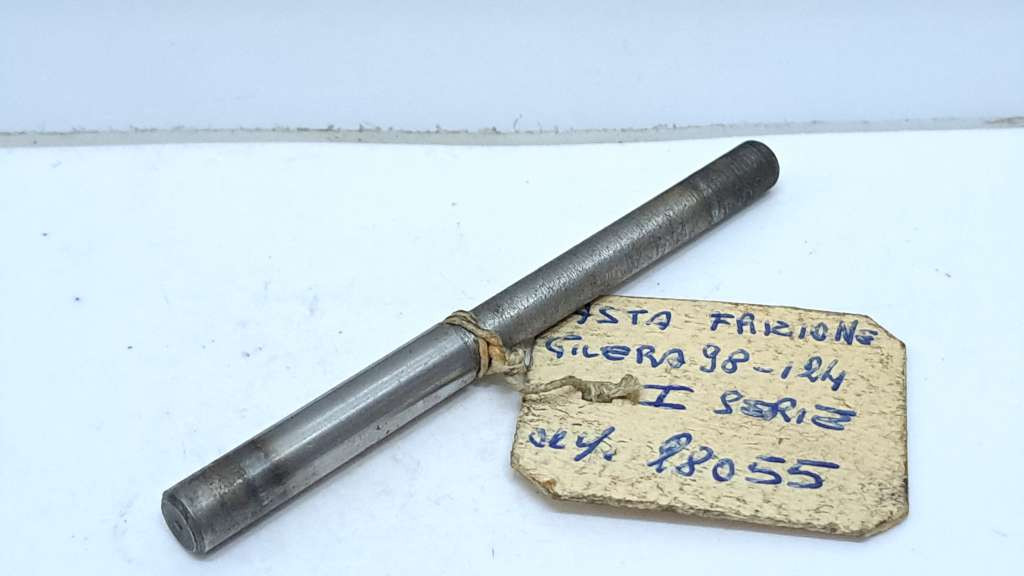 ASTA FARIONE
GILERA 98-124
I SERIE
98055